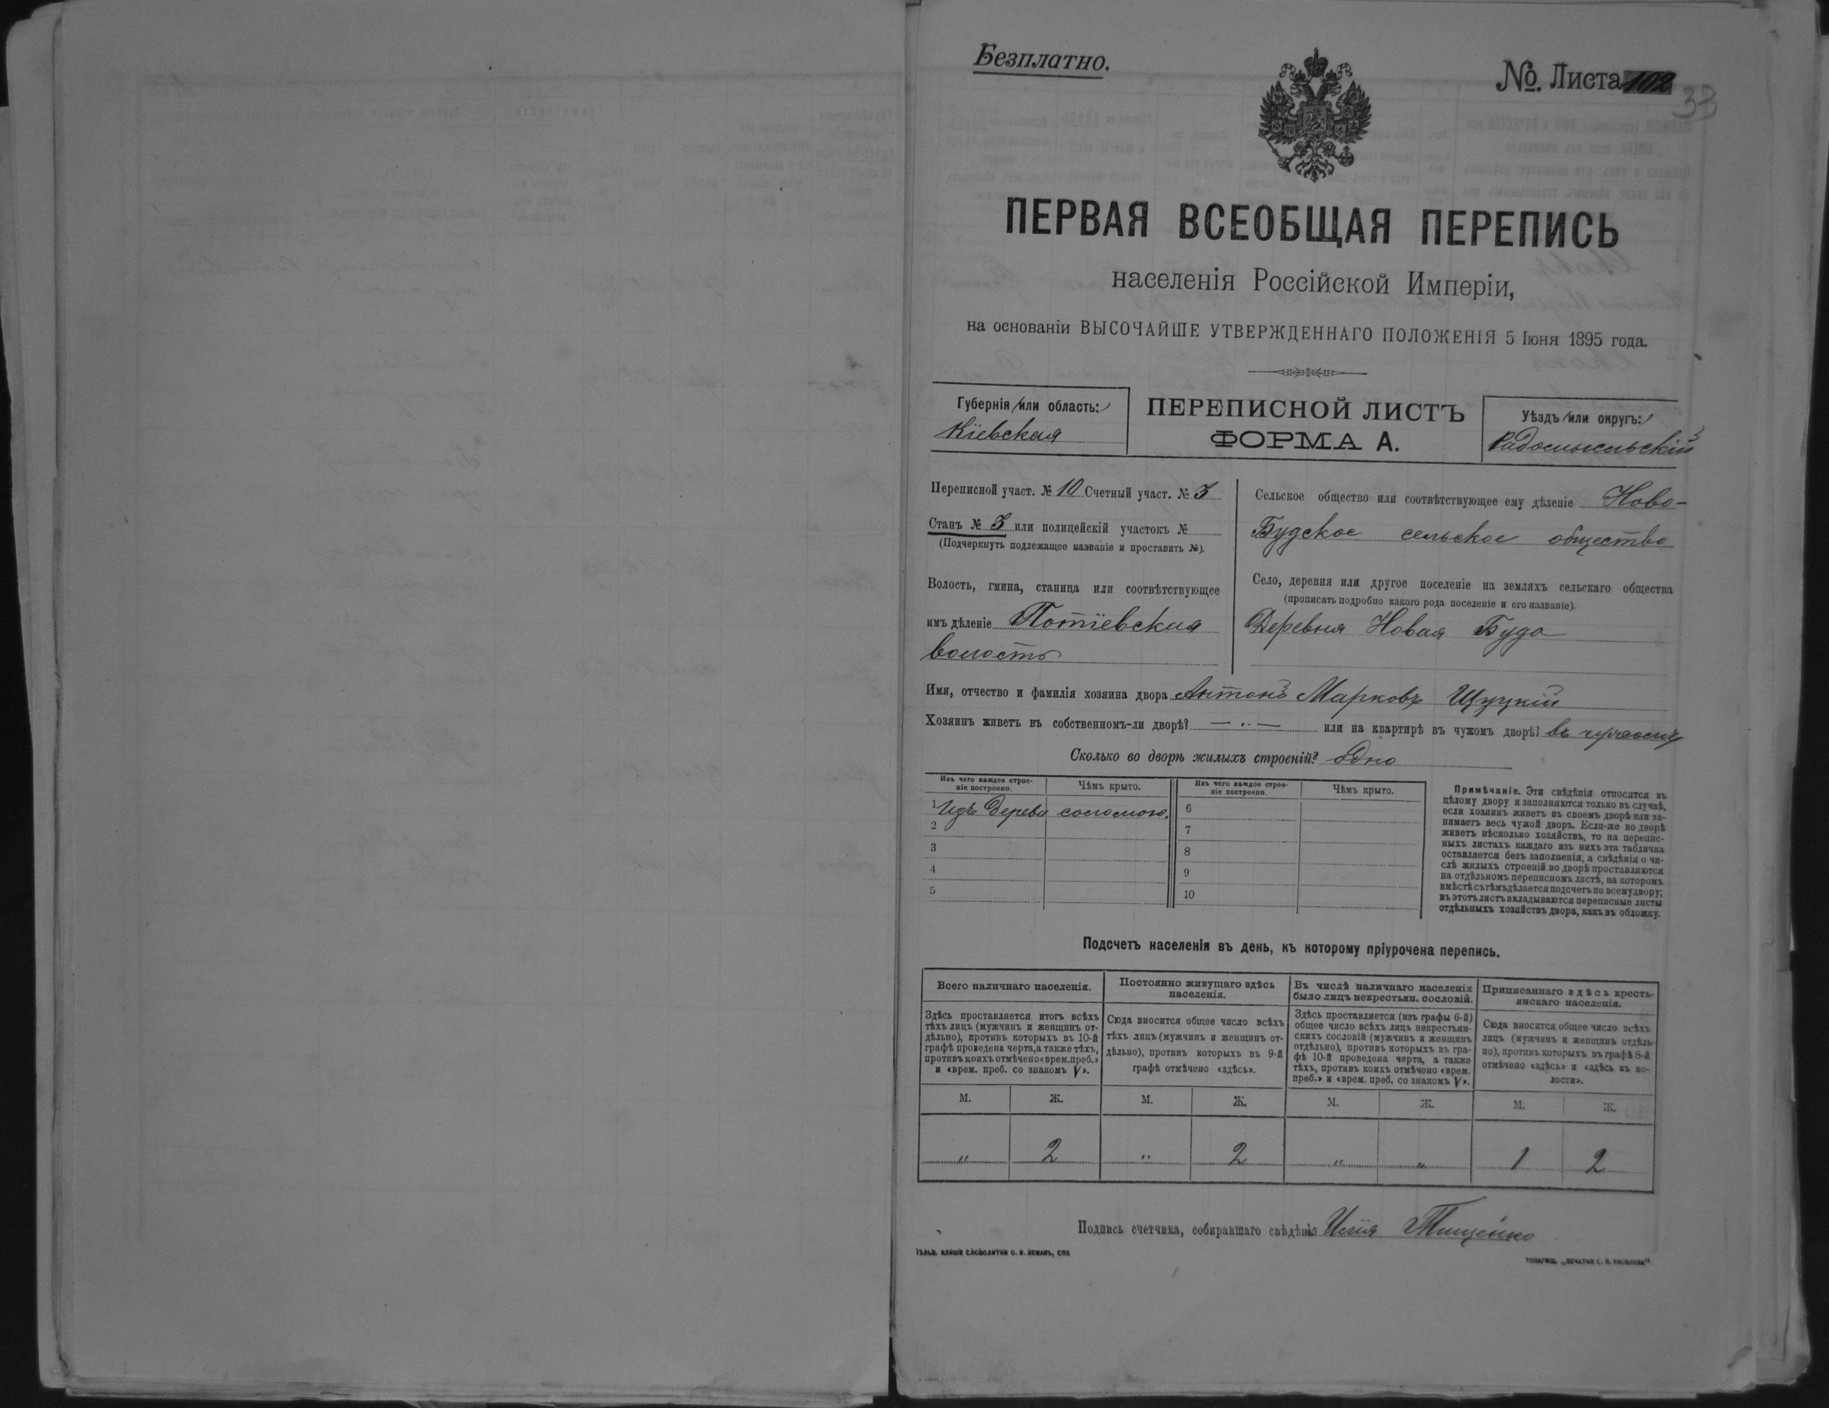 Безплатно.
№. Листа 102
33
ПЕРВАЯ ВСЕОБЩАЯ ПЕРЕПИСЬ
населенія Россійской Имперіи,
на основаніи ВЫСОЧАЙШЕ УТВЕРЖДЕННАГО ПОЛОЖЕНІЯ 5 Іюня 1895 года.
Губернія (или область:)
Кіевская
ПЕРЕПИСНОЙ ЛИСТЪ
ФОРМА А.
Уѣздъ (или округъ:)
Радомысльскій
Переписной участ. № 10 Счетный участ. № 3
Станъ № 3 или полицейскій участокъ №
(Подчеркнуть подлежащее названіе и проставить №).
Волость, гмина, станица или соотвѣтствующее
имъ дѣленіе Потіевская
волость
Сельское общество или соотвѣтствующее ему дѣленіе Ново-
Будское сельское общество
Село, деревня или другое поселеніе на земляхъ сельскаго общества
(прописать подробно какого рода поселеніе и его названіе).
Деревня Новая Буда
Имя, отчество и фамилія хозяина двора Антонъ Марковъ Щуцкій
Хозяинъ живетъ въ собственномъ-ли дворѣ? — „ — или на квартирѣ въ чужомъ дворѣ? въ чужомъ
Сколько во дворѣ жилыхъ строеній? Одно
Изъ чего каждое строе-
ніе построено.
Чѣмъ крыто.
Изъ чего каждое строе-
ніе построено.
Чѣмъ крыто.
1 Изъ дерева соломою.
2
3
4
5
6
7
8
9
10
Примѣчаніе. Эти свѣдѣнія относятся къ
цѣлому двору и заполняются только въ случаѣ,
если хозяинъ живетъ въ своемъ дворѣ или за-
нимаетъ весь чужой дворъ. Если-же во дворѣ
живетъ нѣсколько хозяйствъ, то на перепис-
ныхъ листахъ каждаго изъ нихъ эта табличка
оставляется безъ заполненія, а свѣдѣнія о чи-
слѣ жилыхъ строеній во дворѣ проставляются
на отдѣльномъ переписномъ листѣ, на которомъ
вмѣстѣ съ тѣмъ дѣлается подсчетъ по всему двору;
въ этотъ листъ вкладываются переписные листы
отдѣльныхъ хозяйствъ двора, какъ въ обложку.
Подсчетъ населенія въ день, къ которому пріурочена перепись.
Всего наличнаго населенія.
Здѣсь проставляется итогъ всѣхъ
тѣхъ лицъ (мужчинъ и женщинъ от-
дѣльно), противъ которыхъ въ 10-й
графѣ проведена черта, а также тѣхъ,
противъ коихъ отмѣчено «врем. преб.»
и «врем. преб. со знакомъ V».
Постоянно живущаго здѣсь
населенія.
Сюда вносится общее число всѣхъ
тѣхъ лицъ (мужчинъ и женщинъ от-
дѣльно), противъ которыхъ въ 9-й
графѣ отмѣчено «здѣсь».
Въ числѣ наличнаго населенія
было лицъ некрестьян. сословій.
Здѣсь проставляется (изъ графы 6-й)
общее число всѣхъ лицъ некрестьян-
скихъ сословій (мужчинъ и женщинъ
отдѣльно), противъ которыхъ въ гра-
фѣ 10-й проведена черта, а также
тѣхъ, противъ коихъ отмѣчено «врем.
преб.» и «врем. преб. со знакомъ V».
Приписаннаго здѣсь кресть-
янскаго населенія.
Сюда вносится общее число всѣхъ
лицъ (мужчинъ и женщинъ отдѣль-
но), противъ которыхъ въ графѣ 8-й
отмѣчено «здѣсь» и «здѣсь къ во-
лости».
М. Ж. М. Ж. М. Ж. М. Ж.
„ 2 „ 2 „ „ 1 2
Подпись счетчика, собиравшаго свѣдѣнія Илія Тищенко